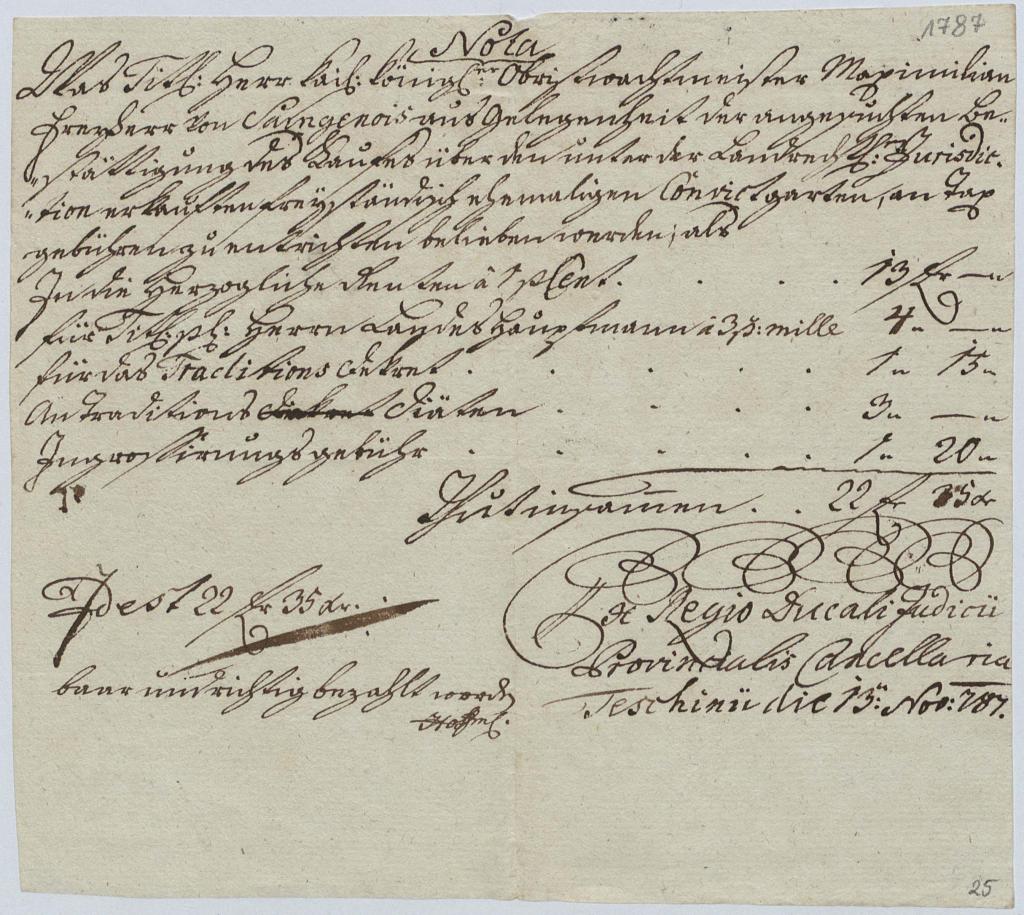 1787
Nota
Was Titl: Herr kais: königl:er Obristwachtmeister Maximilian
Freyherr von Saingenois aus Gelegenheit der angesuchten Be-
-stättigung des Kaufes über den unter der Landrechtl: Jurisdic-
-tion erkauften freyständisch ehemaligen Convictgarten, an Tax
gebühren zu entrichten belieben werden, als
In die Herzogliche Renten à 1 pCent. . . . . 13 fr —„
für Titl: pl: Herrn Landeshauptmann à 3 p: mille 4„ —„
für das Traditions dekret . . . . . 1„ 15„
An Traditions diäten . . . . 3„ —„
Ingrossirungsgebühr . . . . . 1„ 20„
Thut insammen . . 22 fr 35 xr
Id est 22 fr 35 xr.
baar und richtig bezahlt word
Ex Regio Ducali Judicii
Provincialis Cancellaria
Teschinii die 13: Nov: 787.
25